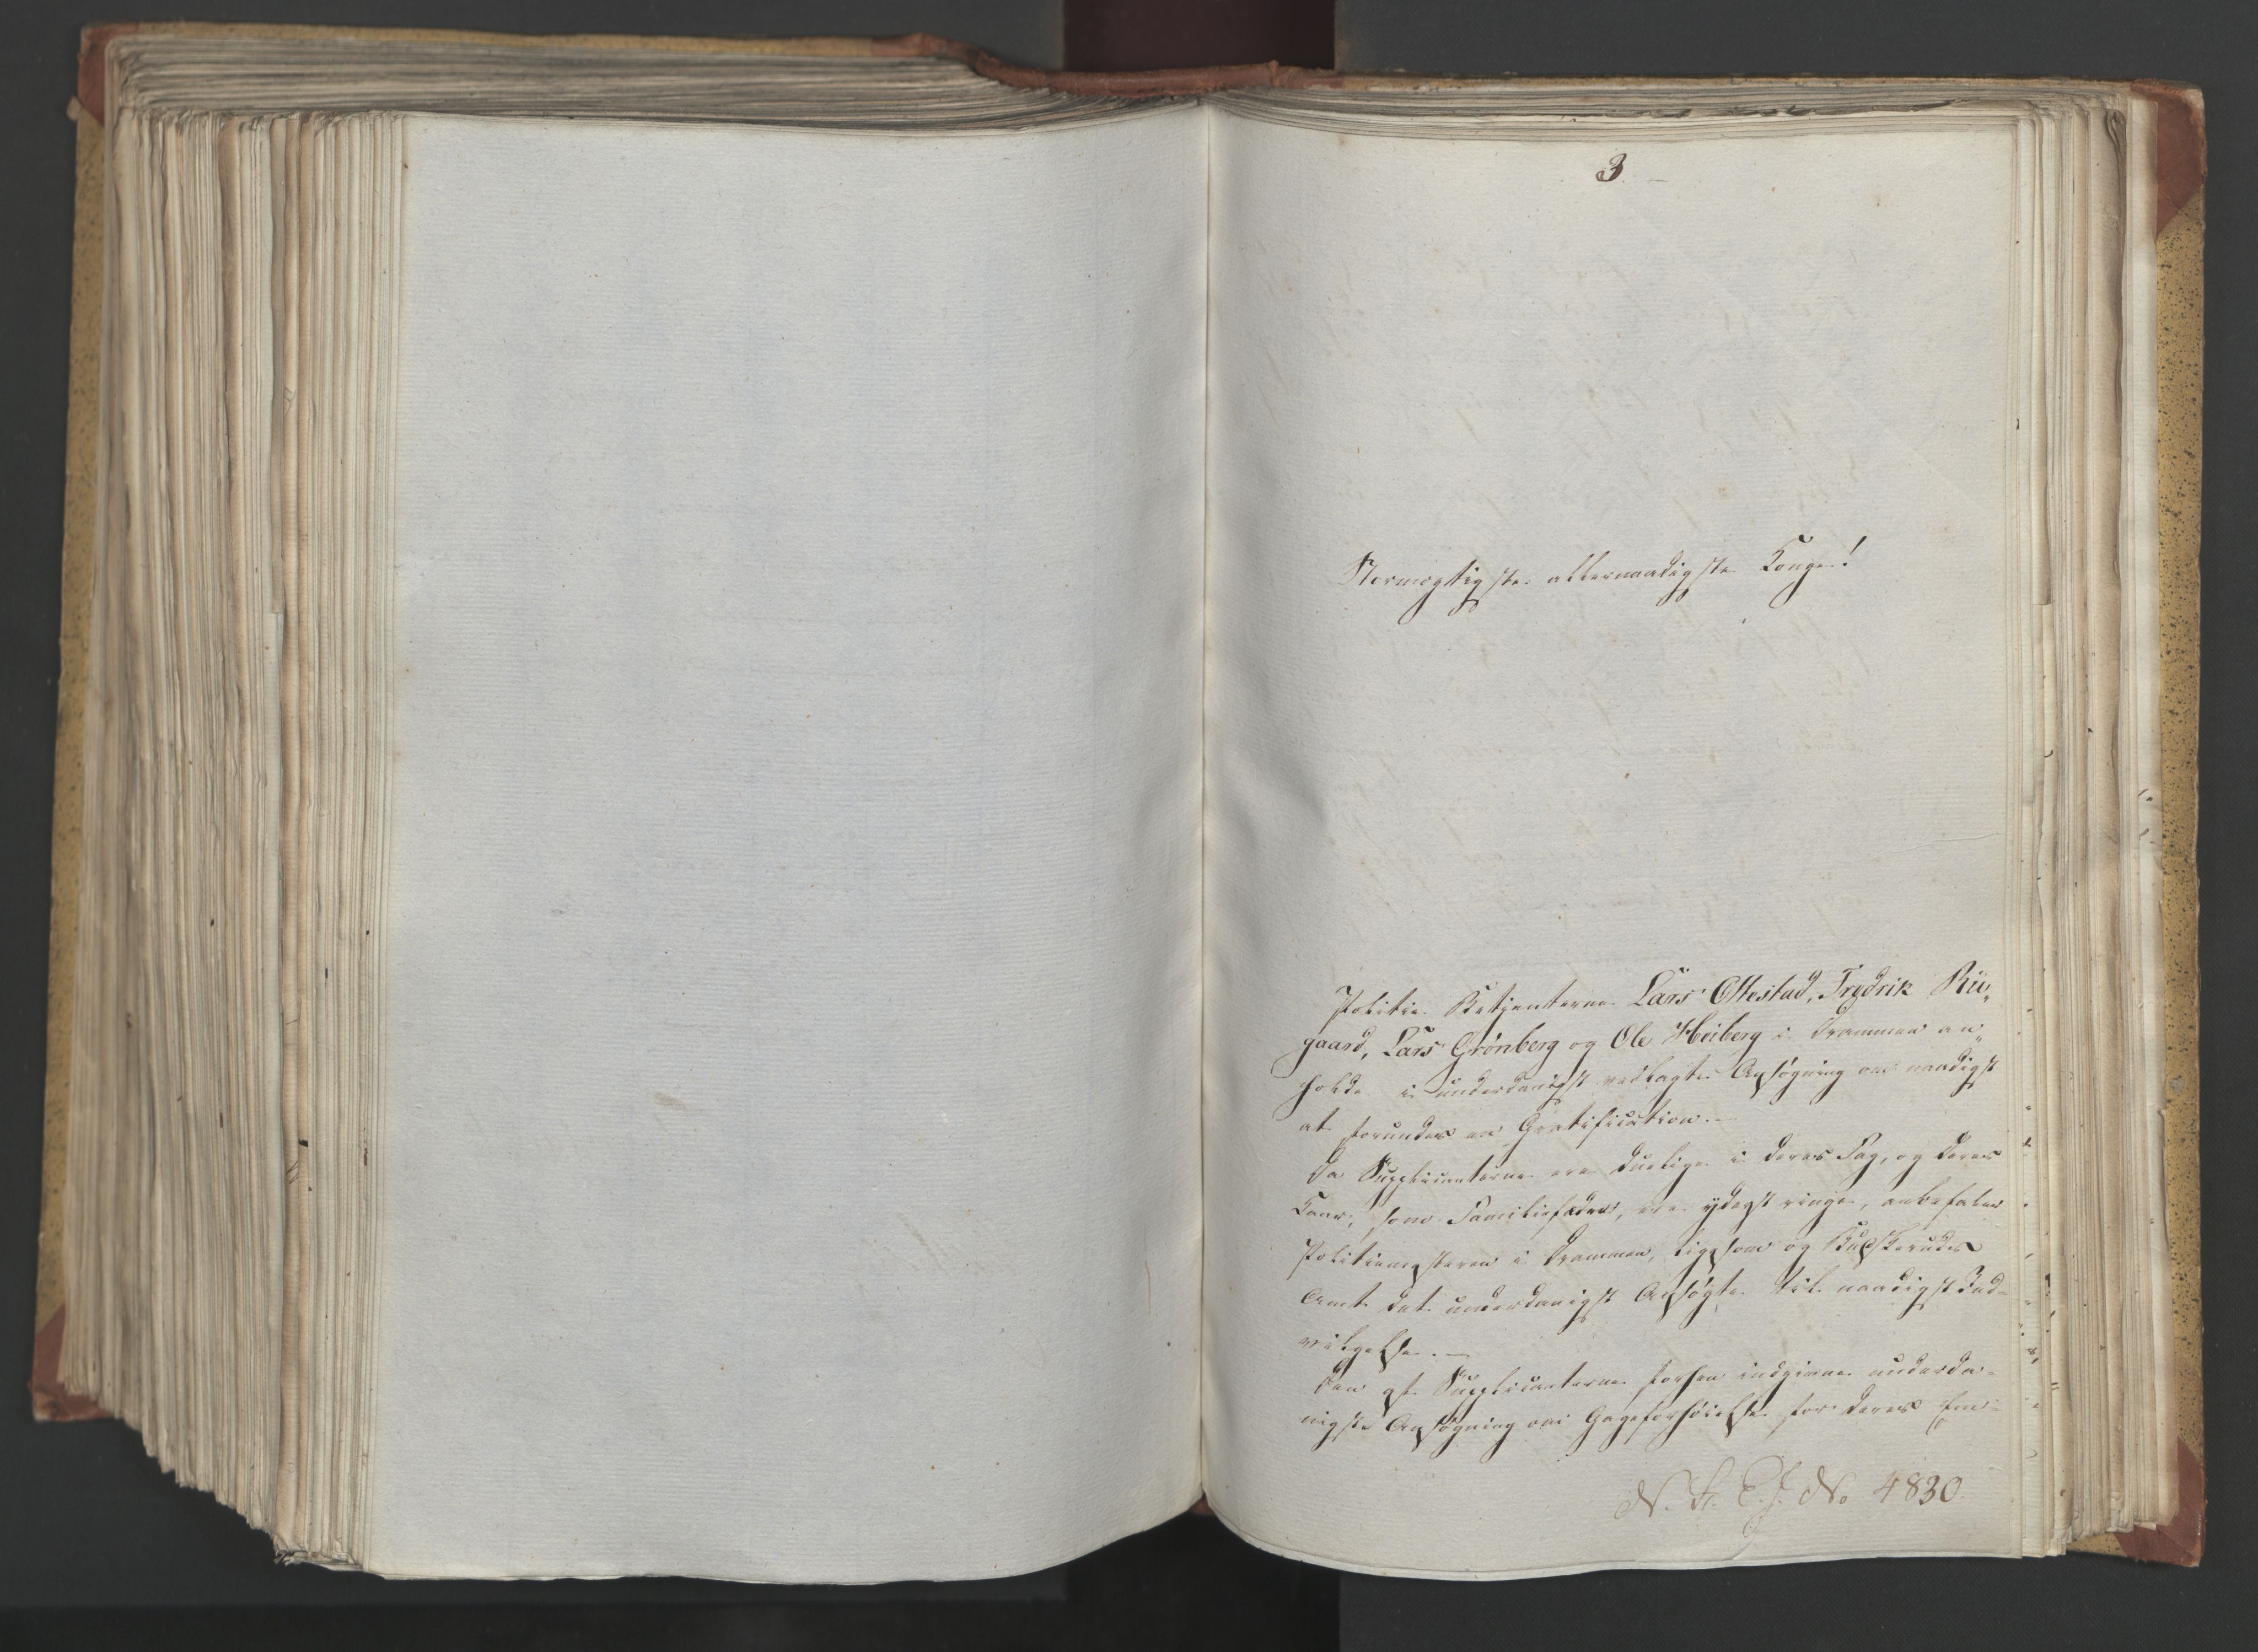 3.
Stormægtigste allernaadigste Konge!
Politie Betjenterne Lars Ottestad, Fredrik Rü„
gaard, Lars Grønberg og Ole Heiberg i Drammen an„
holde i underdanigst vedlagte Ansøgning om naadigst
at forundes en Gratification.—
Da Supplicanterne ere duelige i deres Fag, og deres
Kaar, som Familiefædre, ere yderst ringe, anbefaler
Politiemesteren i Drammen, ligesom og Budskeruds
Amt det underdanigst Ansøgte til naadigst Ind-
vilgelse.—
Den af Supplicanterne forhen indgivne underda-
nigste Ansøgning om Gageforhøielse for deres Em-
N. R. E. J. No 4830.